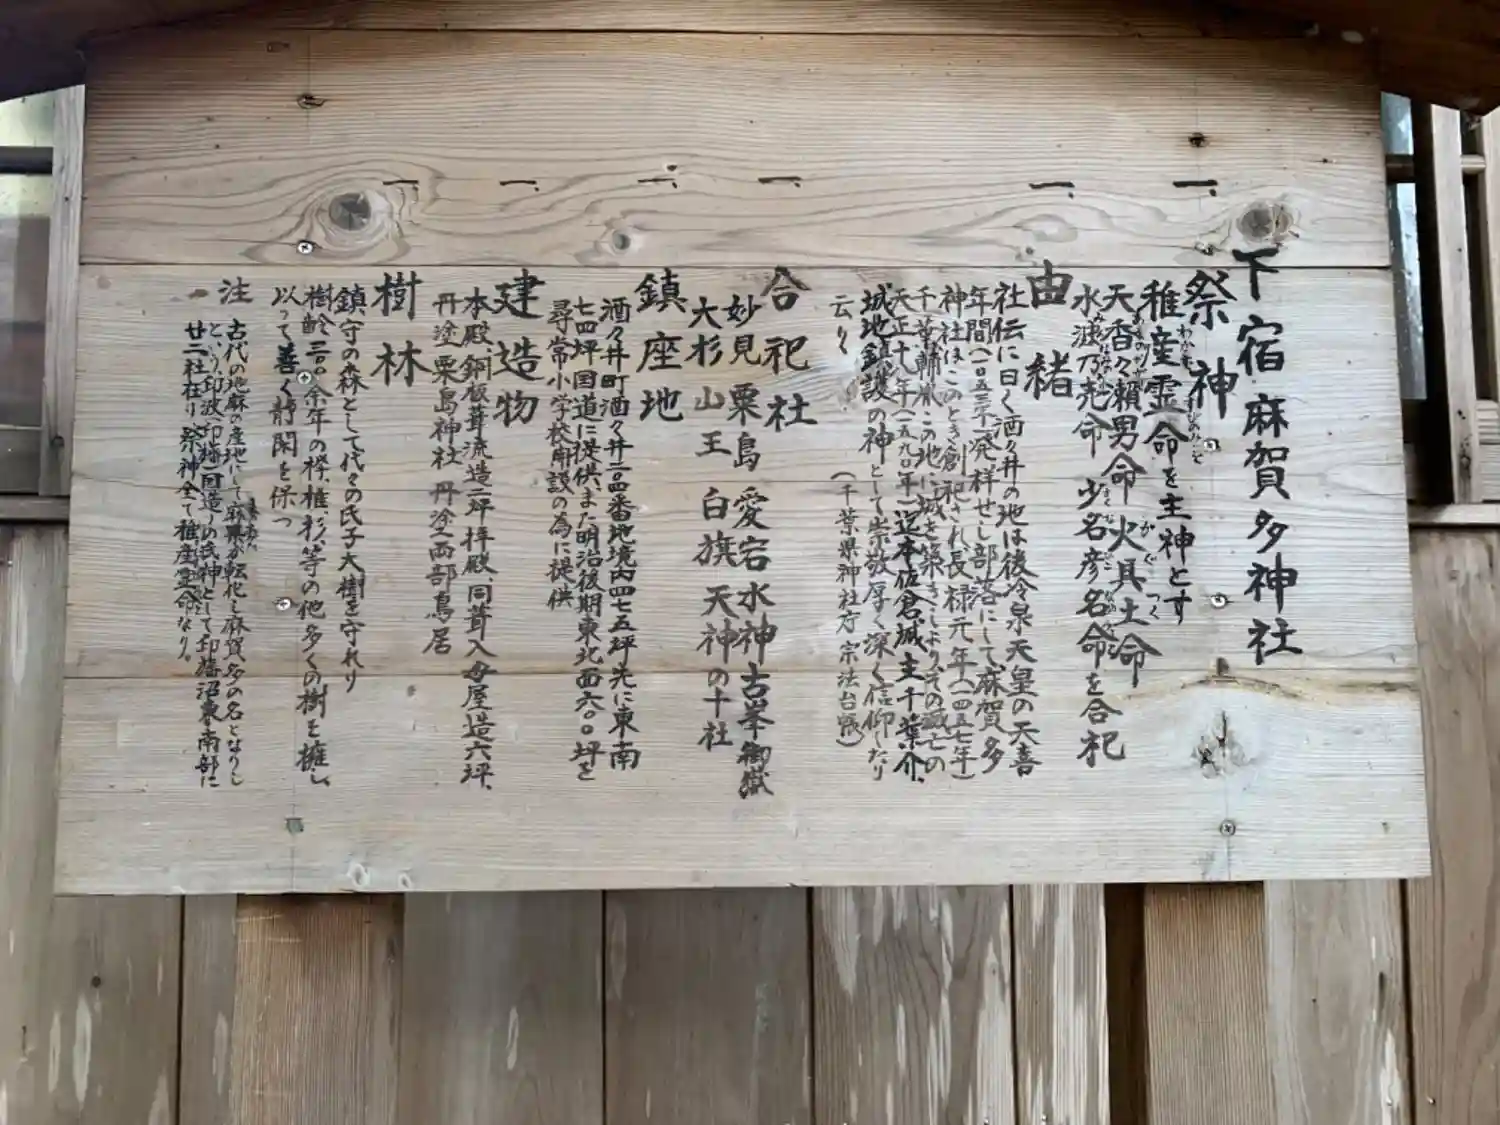 下宿麻賀多神社
一、祭神
稚産霊命を主神とす
天香々瀬男命 火具土命
水波乃売命 少名彦名命を合祀
一、由緒
社伝に曰く酒々井の地は後冷泉天皇の天喜
年間(一〇五三)発祥せし部落にして麻賀多
神社はこのとき創祀され長禄元年(一四五七年)
千葉輔胤この地に城を築きしよりその滅亡の
天正十八年(一五九〇年)迄本佐倉城主千葉介、
城地鎮護の神として崇敬厚く深く信仰したり
云々 (千葉県神社庁宗法台帳)
一、合祀社
妙見 粟島 愛宕 水神 古峯 御嶽
大杉 山王 白旗 天神の十社
一、鎮座地
酒々井町酒々井二〇四番地境内四七五坪先に東南
七四坪国道に提供また明治後期東北面六〇〇坪を
尋常小学校開設の為に提供
一、建造物
本殿、銅板葺流造二坪 拝殿、同葺入母屋造六坪、
丹塗粟島神社 丹塗西部鳥居
一、樹林
鎮守の森として代々の氏子大樹を守れり
樹齢三〇〇余年の欅、椎、杉、等の他多くの樹を擁し
以って善く静閑を保つ
注 古代の地麻の産地にして麻県が転化し麻賀多の名となりし
という 印波印旛国造の氏神として印旛沼東南部に
廿一社在り祭神全て稚産霊命なり。